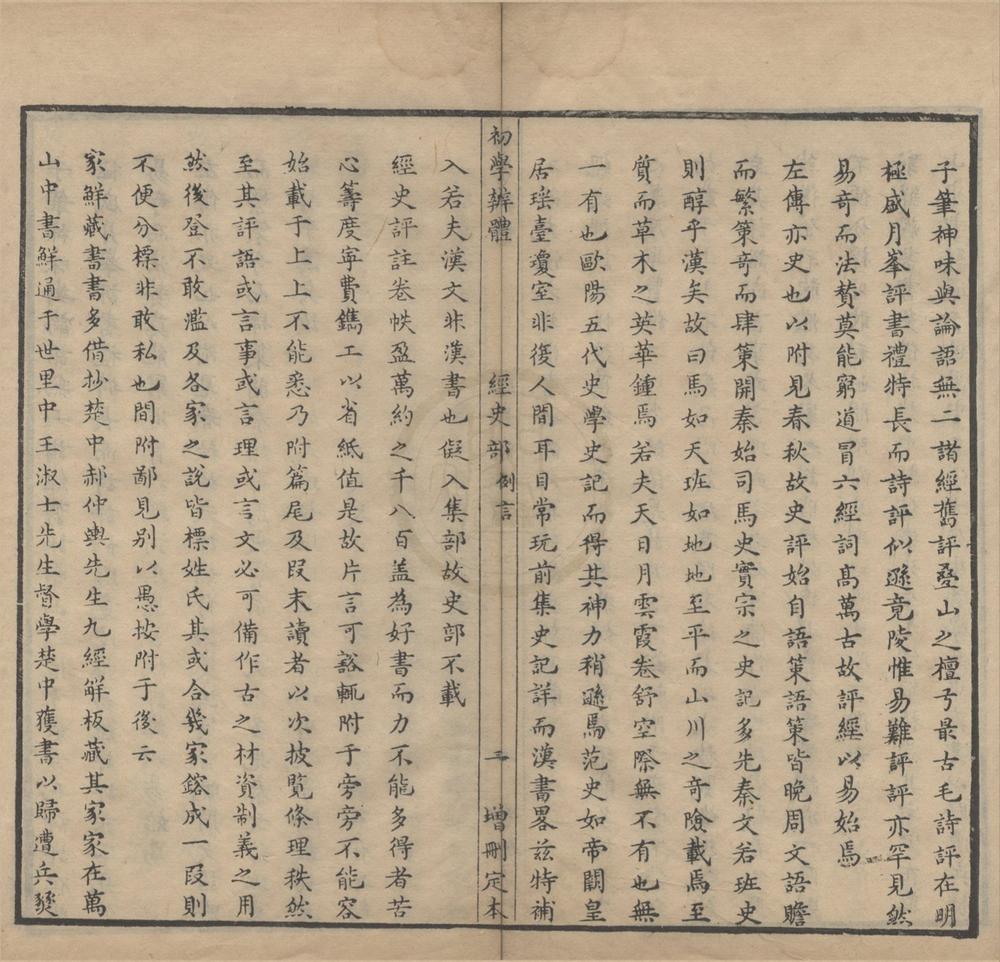 子筆神味與論語無二諸經舊評疊山之檀弓最古毛詩評在明
極盛月峯評書禮特長而詩評似遜竟陵惟易難評評亦罕見然
易奇而法贊莫能窮道冒六經詞高萬古故評經以易始焉
左傳亦史也以附見春秋故史評始自語策語策皆晚周文語贍
而繁策奇而肆策開秦始司馬史實宗之史記多先秦文若班史
則醇乎漢矣故曰馬如天班如地地至平而山川之奇險載焉至
質而草木之英華鍾焉若夫天日月雲霞卷舒空際無不有也無
一有也歐陽五代史學史記而得其神力稍遜馬范史如帝闕皇
居瑶臺瓊室非復人間耳目常玩前集史記詳而漢書畧玆特補
初學辨體 經史部 例言 三 增刪定本
入若夫漢文非漢書也儗入集部故史部不載
經史評註卷帙盈萬約之千八百盖為好書而力不能多得者苦
心籌度寜費鐫工以省紙值是故片言可豁輒附于旁旁不能容
始載于上上不能悉乃附篇尾及段末讀者以次披覽條理秩然
至其評語或言事或言理或言文必可備作古之材資制義之用
然後登不敢濫及各家之說皆標姓氏其或合幾家鎔成一段則
不便分標非敢私也間附鄙見别以愚按附于後云
家鮮藏書書多借抄楚中郝仲輿先生九經解板藏其家家在萬
山中書鮮通于世里中王淑士先生督學楚中獲書以歸遭兵燹